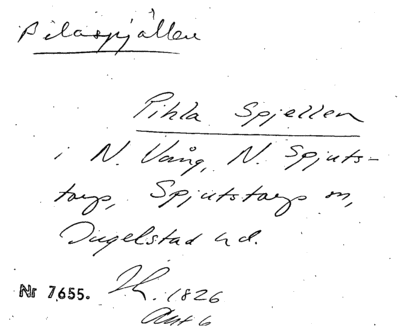 Pilaspjällen
Pihla Spjellen
i N. Vång, N. Spjuts-
torp, Spjutstorps sn,
Ingelstad hd.
Nr 7655. 1826
Akt 6